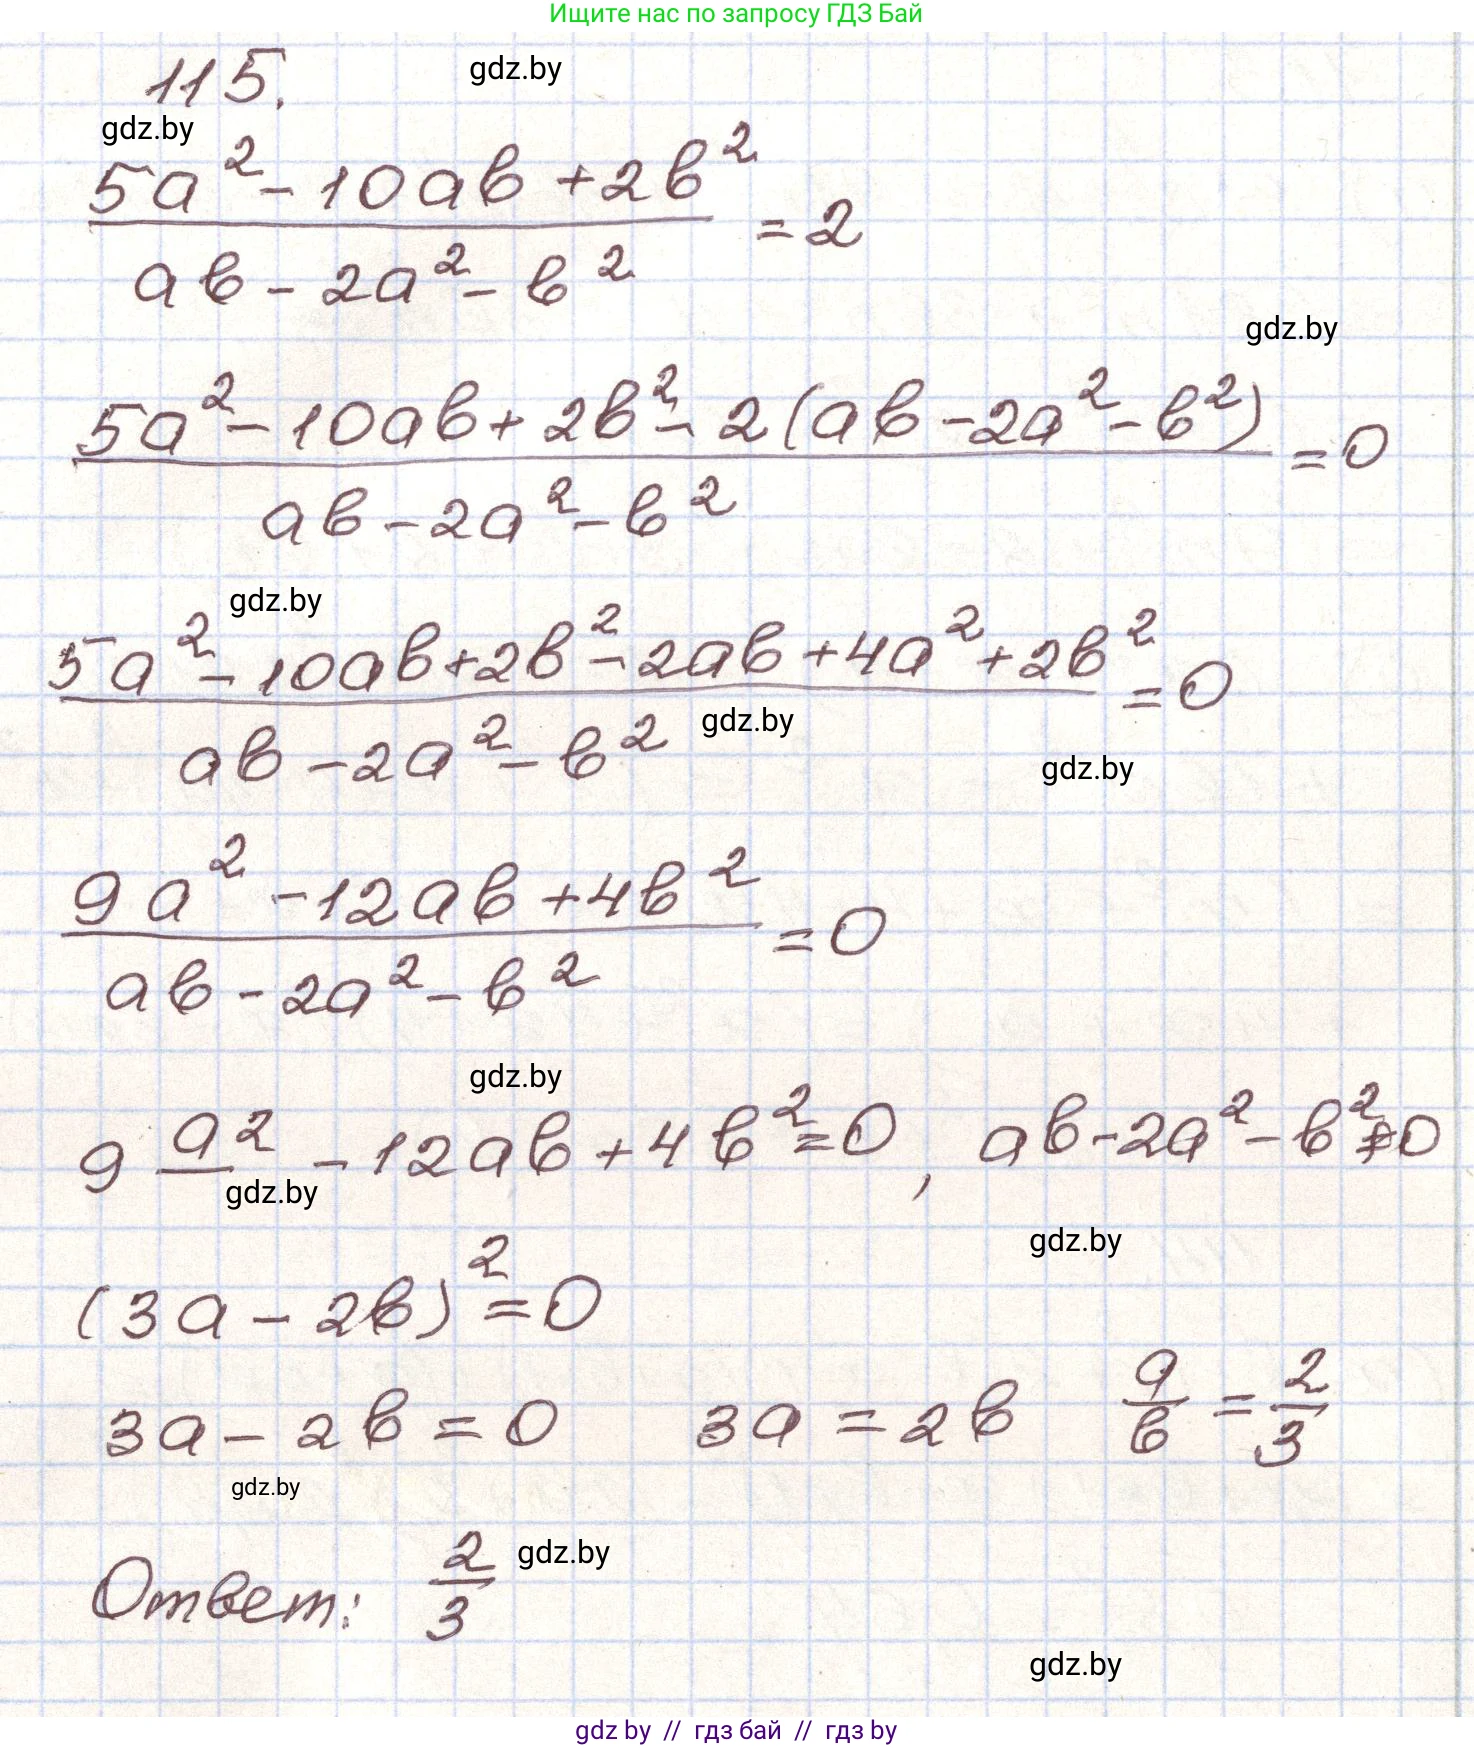 Ищите нас по запросу ГДЗ Бай
115.
gdz.by
gdz.by
5a² - 10ab + 2b²
= 2
ab - 2a² - b²
gdz.by
5a² - 10ab + 2b² - 2(ab - 2a² - b²)
= 0
ab - 2a² - b²
gdz.by
5a² - 10ab + 2b² - 2ab + 4a² + 2b²
= 0
ab - 2a² - b²
gdz.by
gdz.by
9a² - 12ab + 4b²
= 0
ab - 2a² - b²
gdz.by
9a² - 12ab + 4b² = 0, ab - 2a² - b² ≠ 0
gdz.by
gdz.by
(3a - 2b)² = 0
3a - 2b = 0 3a = 2b a/b = 2/3
gdz.by
Ответ: 2/3
gdz.by
gdz.by
gdz by // гдз бай // гдз by